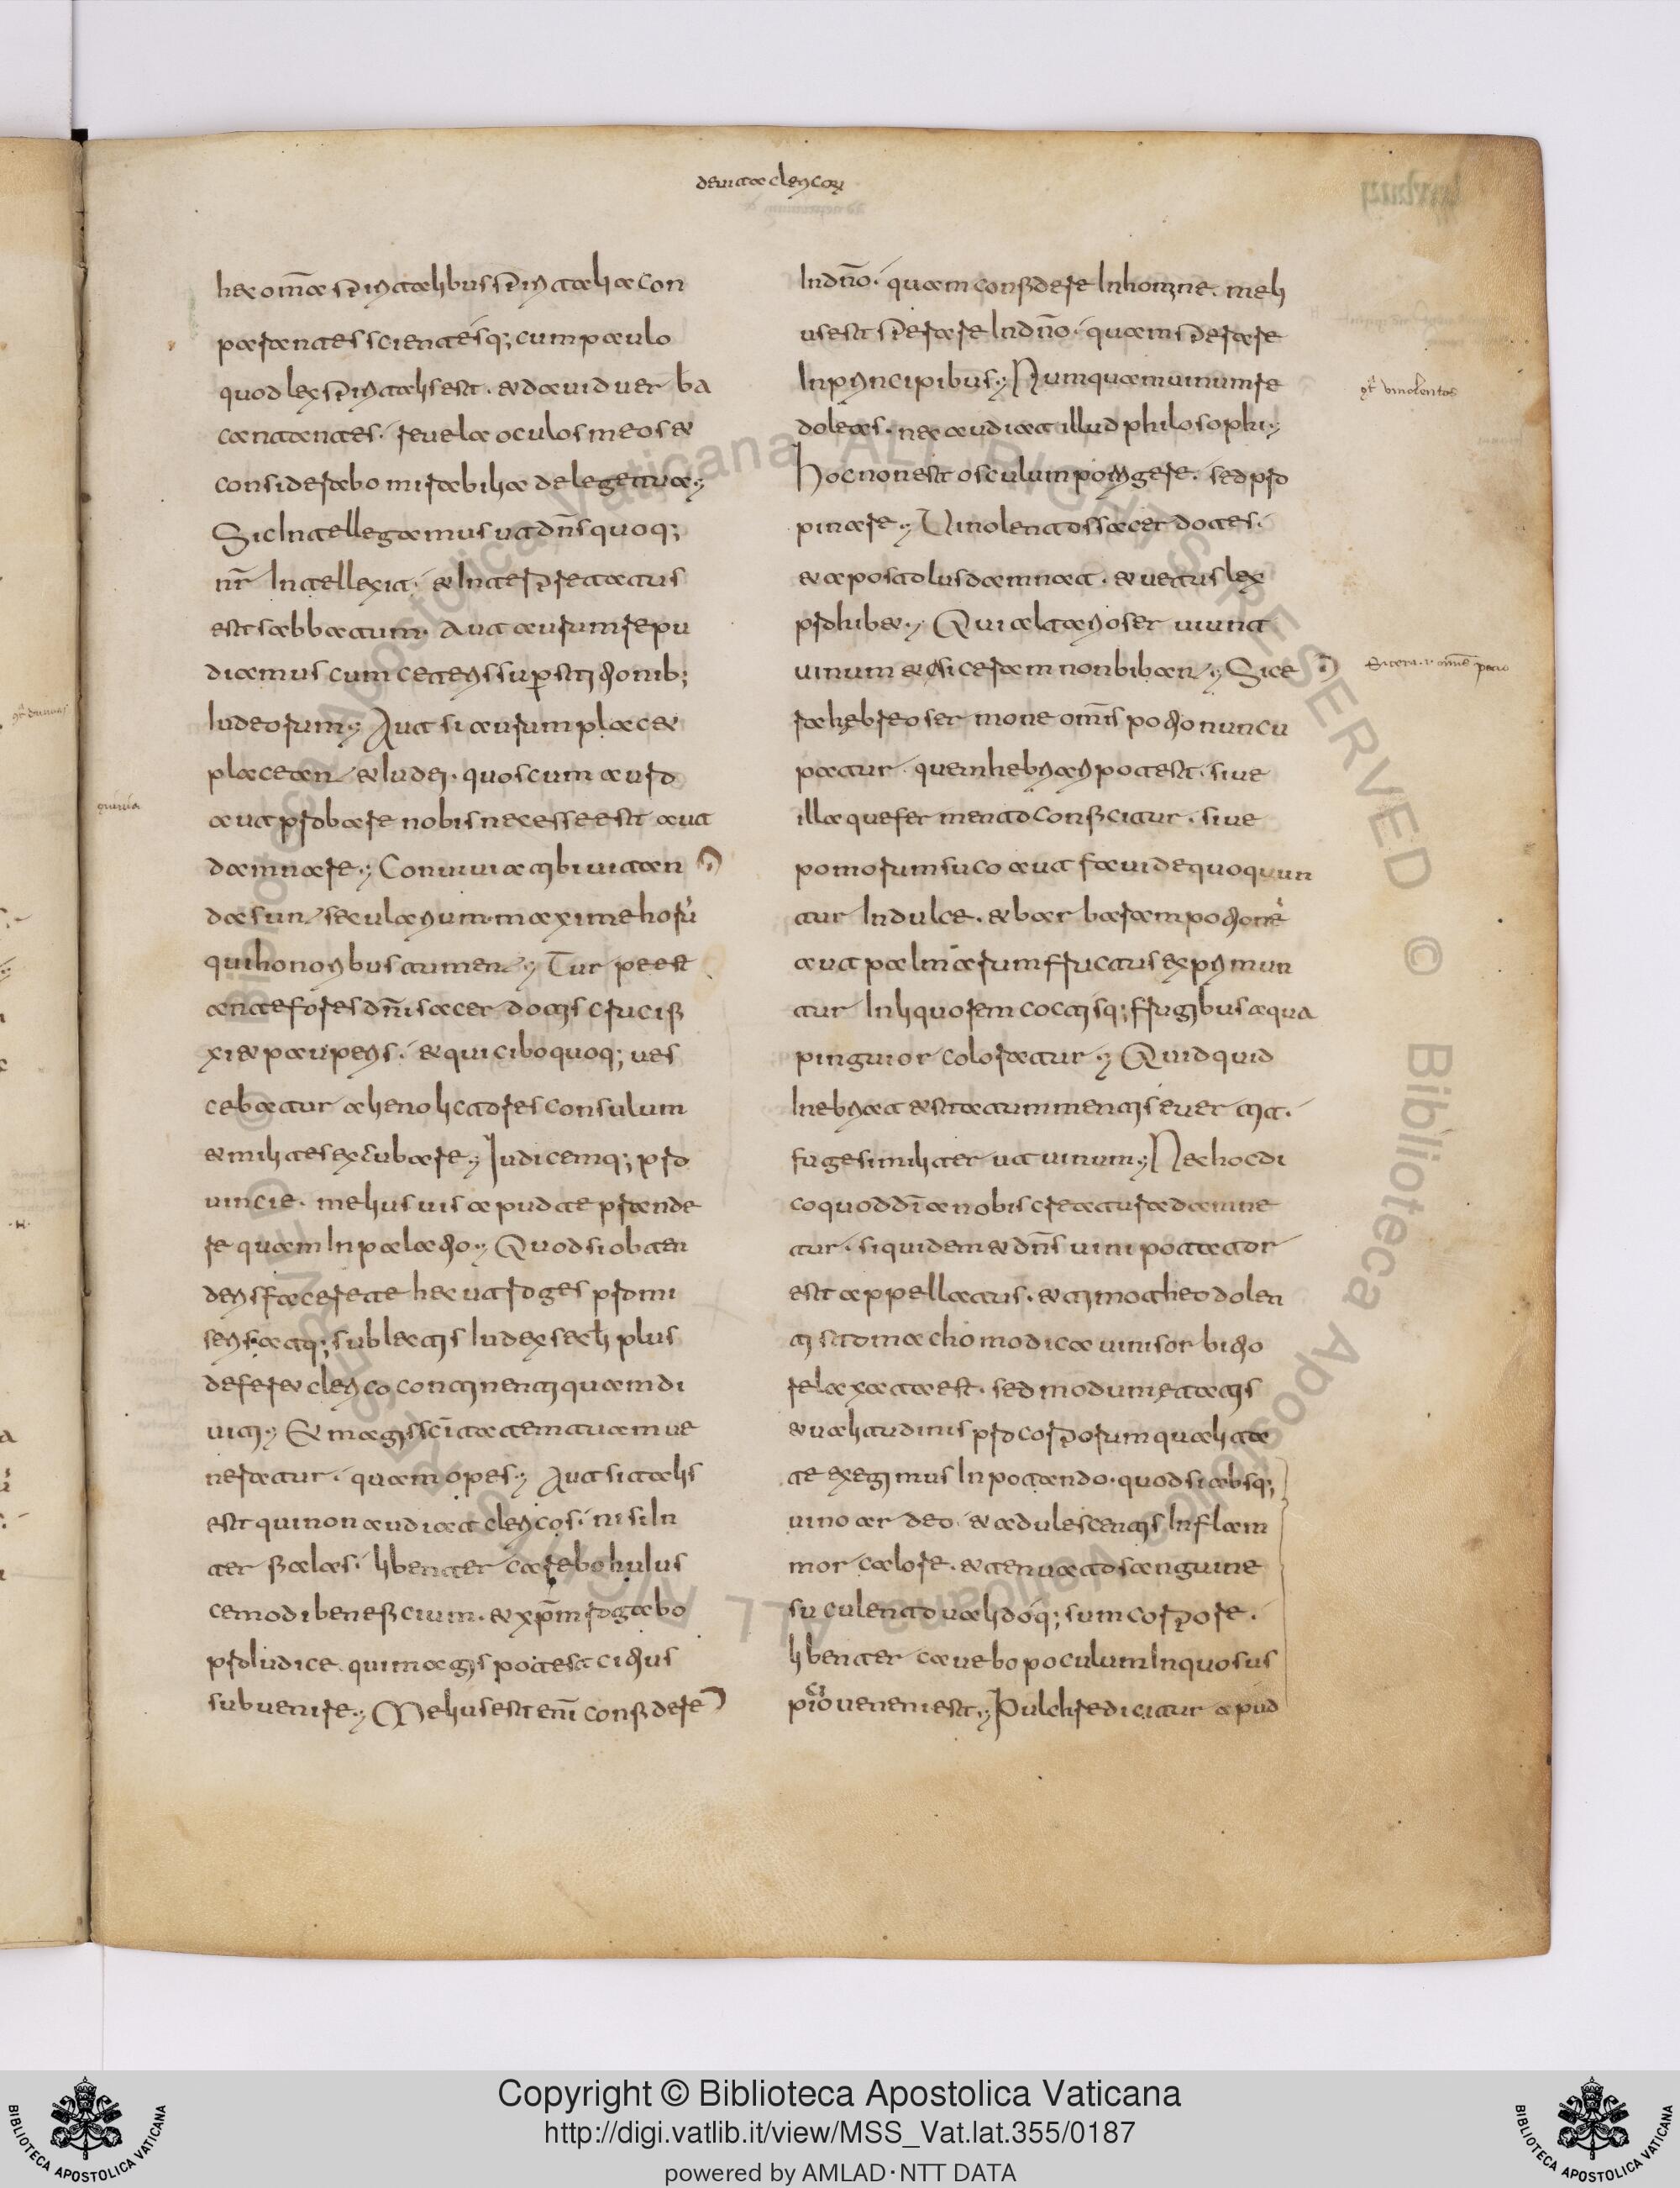 de uita clericoꝝ
hec om̅a sp̅iritalibus sp̅iritalia con
parantes scientesq; cum paulo
quod lex sp̅iritalis est. et dauid uerba
cantantes. reuela oculos meos et
considerabo mirabilia de lege tua.
Sic Intellegamus ut dn̅s quoq;
nr̅ Intellexit. et Interp̅retatus
est sabbatum. Aut aurum repu
diamus cum ceteris superstitionib;
Iudeorum. Aut si aurum placet
placeant et Iudei. quos cum auro
aut probare nobis necesse est aut
damnare. Conuiuia tibi uitan
da sunt secularium. maxime horu̅
qui honoribus tument. Turpe est
ante fores dn̅i sacerdotis crucifi
xi et pauperis. et qui cibo quoq; ues
cebatur alieno lictores consulum
et milites excubare. Iudicemq; pro
uincie. melius uis apud te prande
re quam In palatio. Quod si obten
deris facere te hec ut roges pro mi
seris atq; sublectis Iudex secl̅i plus
deferet clerico continenti quam di
uiti. Et magis sc̅itatem tuam ue
neratur. quam opes. Aut si talis
est qui non audiat clericos. nisi In
ter fialas. libenter carebo huius
cemodi beneficium. et xp̅m rogabo
pro Iudice. qui magis potest citius
subuenire. Melius est eni̅ confidere
In dn̅o. quam confidere In homine. meli
us est sp̅erare In dn̅o. quam sp̅erare
In principibus. Numquam uinum re
doleas. nec audiat illud philosophi.
Hoc non est osculum porrigere. sed pro
pinare. Uinolentos sacerdotes.
et apostolus damnat. et uetus lex
prohibet. Qui altario seruiunt
uinum et siceram non bibant. Sice
ra hebreo sermone om̅is potio nuncu
patur. quem hebriari potest. siue
illa que fermento conficitur. siue
pomorum suco aut faui dequoqun
tur In dulce. et barbaram potione̅
aut palmarum fructus exprimun
tur In liquorem coctisq; frugibus aqua
pinguior coloratur. Quidquid
Inebriat et statum mentis euertit.
fuge similiter ut uinum. Nec hoc di
co quod di̅ a nobis creatura damne
tur. siquidem et dn̅s uini potator
est appellatus. et timotheo dolen
ti stomacho modica uini sorbitio
relaxata est. sed modum etatis
et ualitudinis pro corp̅orum qualita
te exegimus In potando. quod si absq;
uino ardeo. et adulescentis Inflam
mor calore. et tenuato sanguine
suculento ualidoq; sum corp̅ore.
libenter cauebo poculum In quo sus
pitio ueneni est. Pulchre dicitur apud
qr̅ uinolentos
Sicera. i. om̅e potio
quiuia